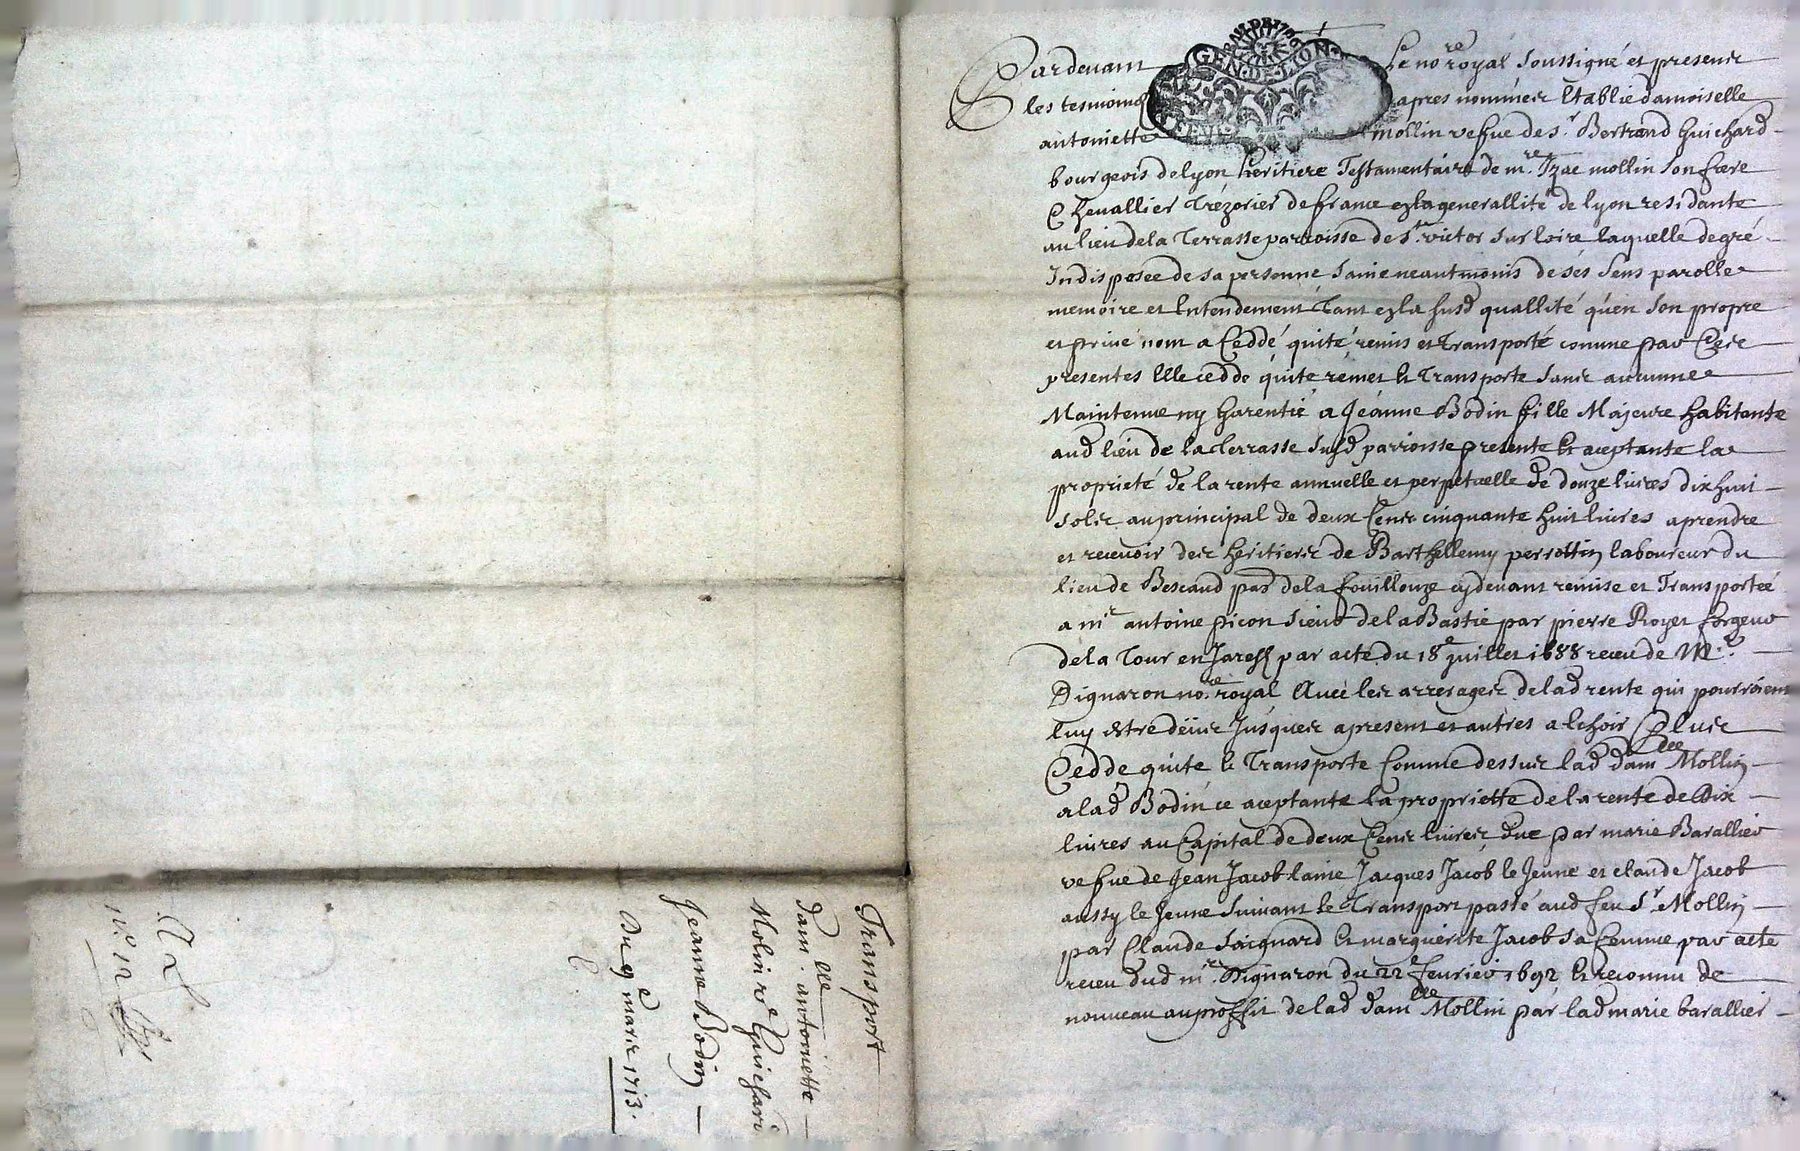 Transport
dam.lle antoinette
Molin ve Guichard
Jeanne Bodin
Du 9e mars 1713.
n° 12
GEN·DE·LION
Pardevant Le no.re royal soussigné et presens
les tesmoins apres nommés Establie damoiselle
antoinette mollin vefve de s.r Bertrand Guichard
bourgeois de lyon heritiere Testamentaire de m.re Izac mollin son frere
Chevallier Trézorier de france en la generallité de lyon residante
au lieu de la Terrasse parroisse de s.t victor sur loire laquelle de gré
Indisposée de sa personne saine neantmoins de ses sens parolle
memoire et Entendement Tant en la susd qualité qu'en son propre
et privé nom a Ceddé quité remis et Transporté comme par Ces
presentes Elle cedde quite remet et Transporte sans aucunne
Maintenue ny Garentie a Jéanne Bodin fille Majeure habitante
aud lieu de la Terrasse susd parroisse presente et aceptante la
proprieté de la rente annuelle et perpetuelle de douze livres dix huit
sols au principal de deux Cens cinquante huit livres a prendre
et recevoir des heritiers de Barthellemy perrottin laboureur du
lieu de Bescaud par de la fouillouze cydevant remise et Transportée
a m.e antoine picon sieur de la Bastie par pierre Royet forgeur
de la Tour en Jarest par acte du 18e juillet 1688 receu de M.e
Dignaron no.re royal Avec les arrerages de lad rente qui pourroient
luy estre deüs Jusques apresent et autres a Echoir Plus
Cedde quite et Transporte Comme dessus lad dam.lle Mollin
a lad Bodin ce aceptante la propriette de la rente de Dix
livres au Capital de deux Cens livres due par marie Barallier
vefve de Jean Jacob laine Jacques Jacob le Jeune et claude Jacob
aussy le Jeune suivant le Transport passé aud feu s.r Mollin
par Claude Saignard et marguerite Jacob sa femme par acte
receu dud m.e Dignaron du 22e fevrier 1692 et reconnu de
nouveau au proffit de lad dam.lle Mollin par lad marie barallier